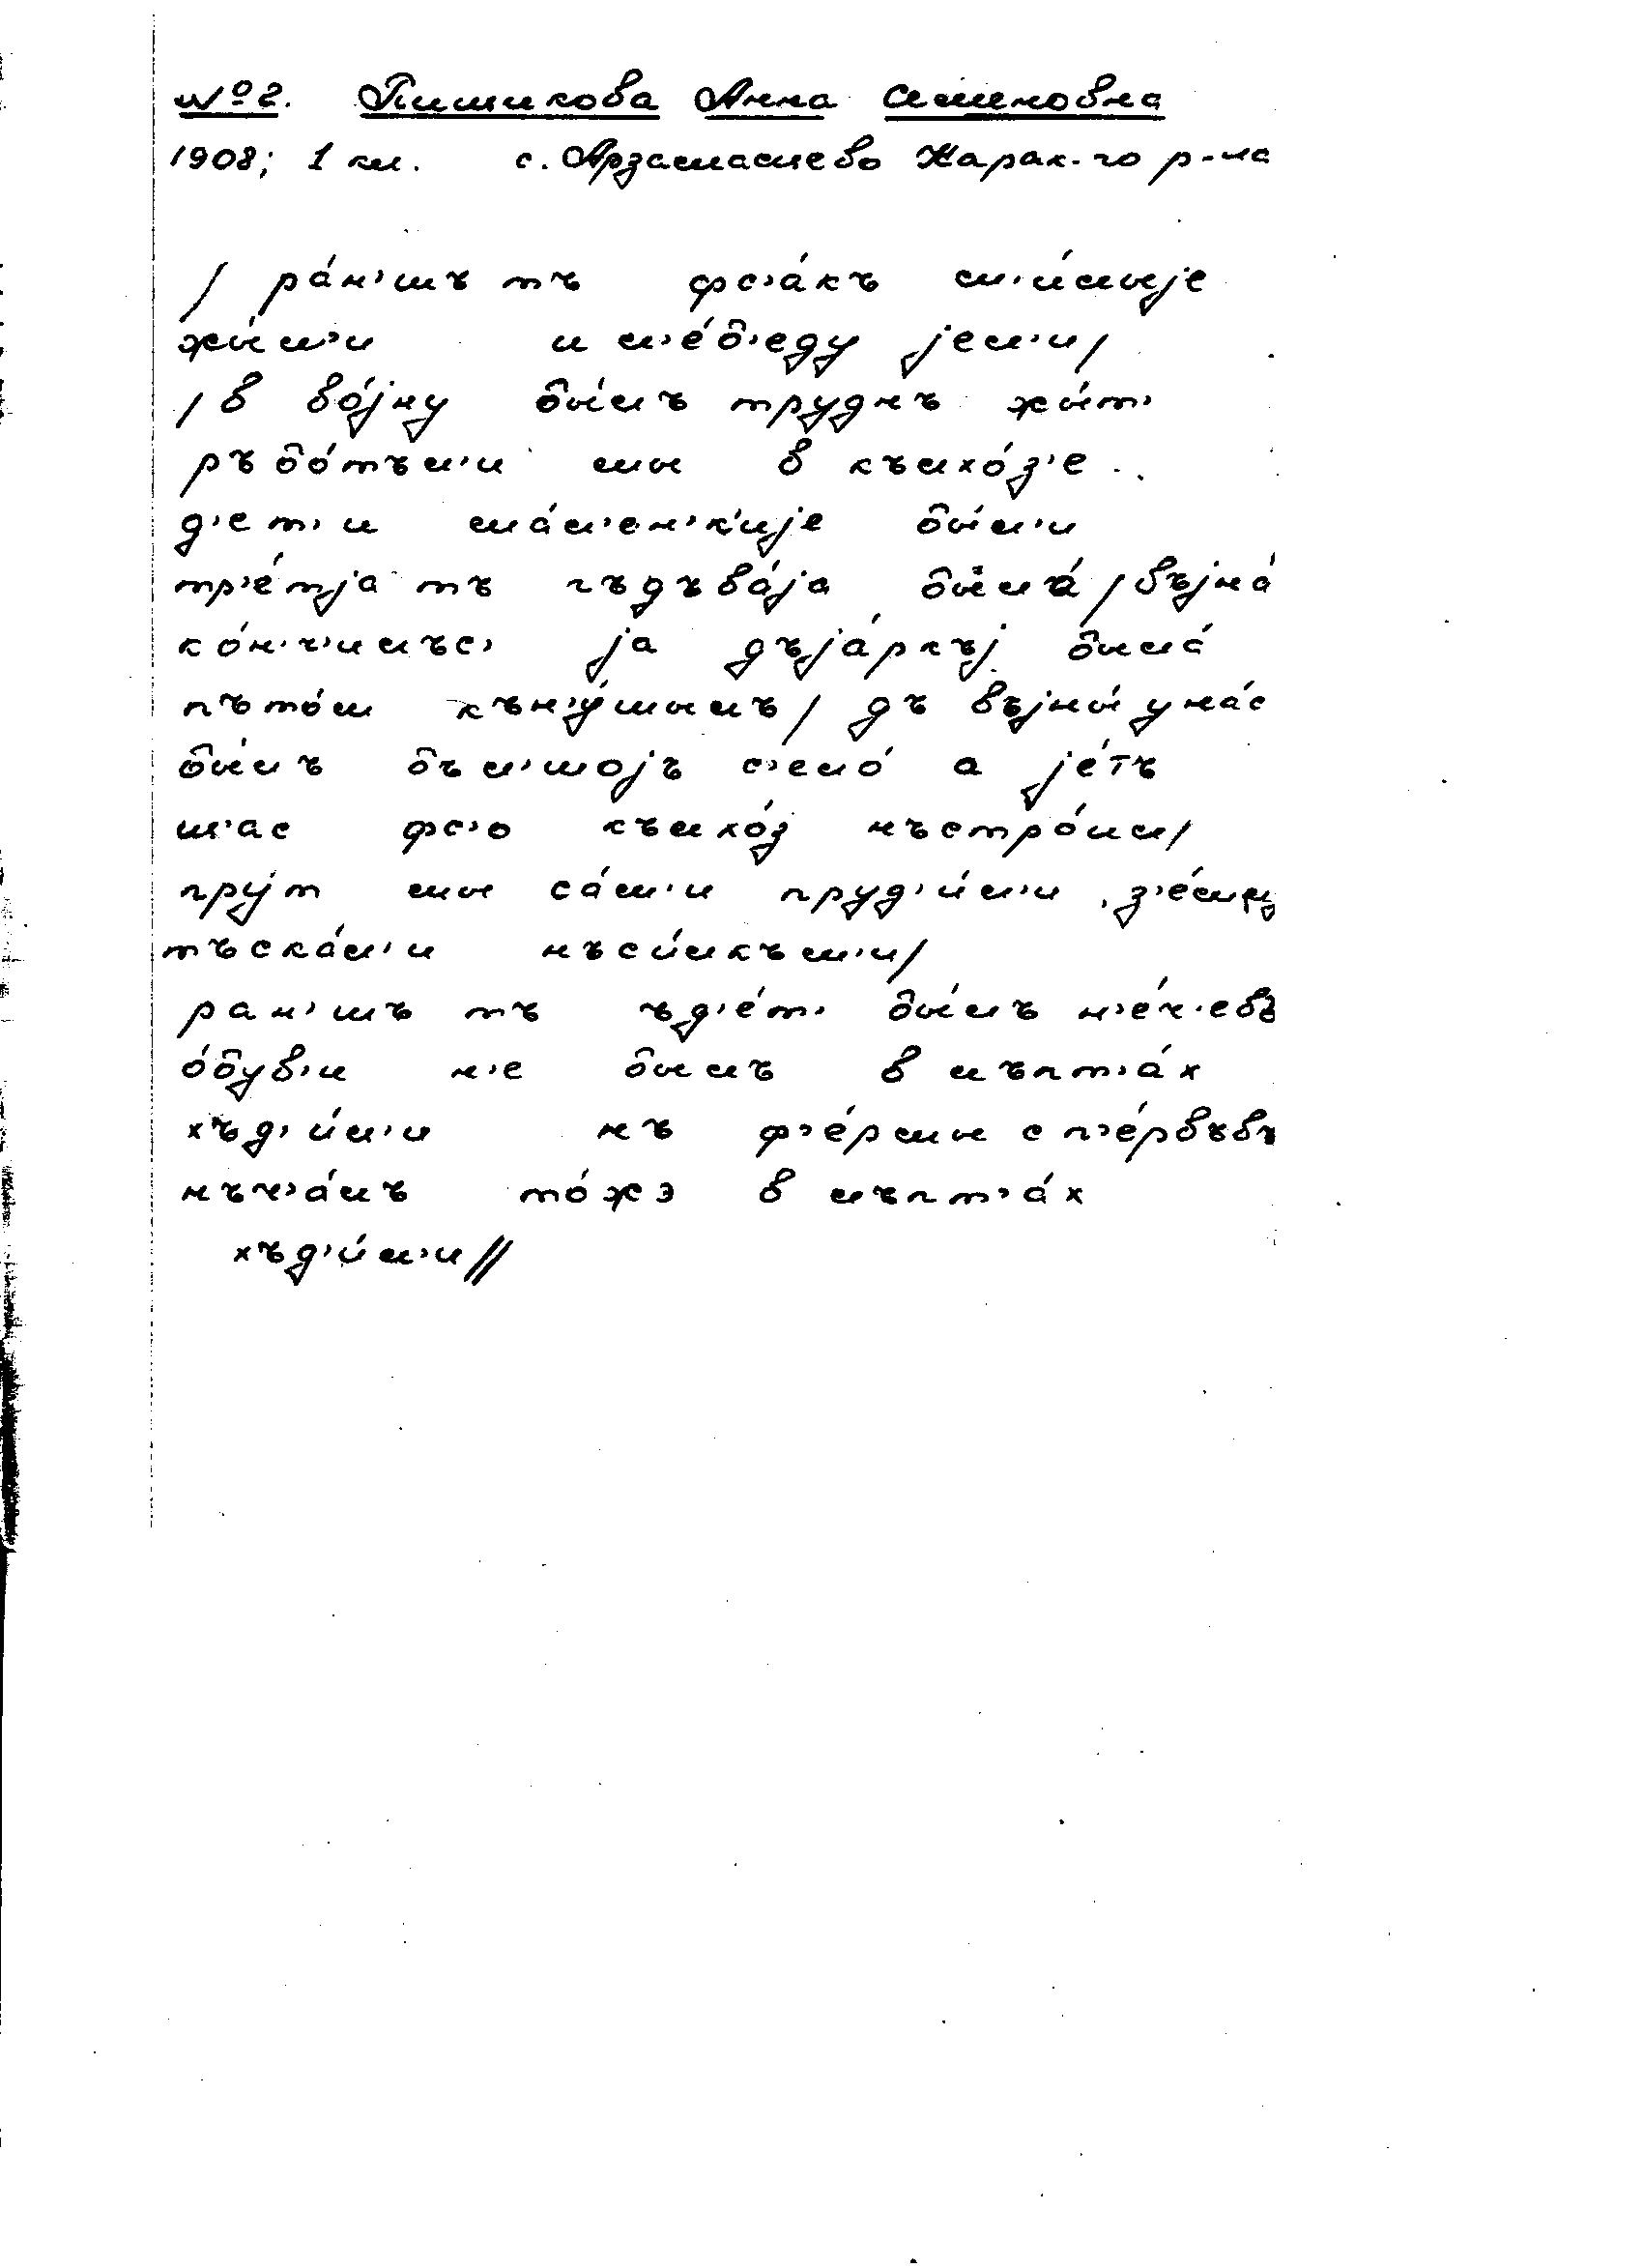 № 2. Пишикова Анна Семеновна
1908; 1 кл. с. Арзамасцево Карак-го р-на
/ ра́н'шъ тъ фс'а́къ м'и́лыjе
жы́л'и и л'е́б'еду jел'и/
/ в во́jну бы́лъ труднъ жы́т'
ръбо́тъл'и мы в кълхо́з'е
д'ет'и ма́л'ен'к'иjе бы́л'и
тр'е́тjа тъ гъдъва́jа была́ / въjна́
ко́н'ч'илъс' jа дъjа́ркъj была́
пъто́м кън'у́шылъ / дъ въjны́ у на́с
бы́лъ бъл'шоjъ с'ело́ а jе́тъ
ш'ас фс'о кълхо́з нъстро́ил/
пру́т мы са́м'и пруд'и́л'и
тъска́л'и нъси́лкъм'и/
ран'шъ тъ ъд'е́т' бы́лъ н'е́ч'евъ
о́був'и н'е былъ в лъпт'а́х
хъд'и́л'и нъ ф'е́рмы с п'е́рвъвъ
нъч'а́лъ то́жэ в лъпт'а́х
хъд'и́л'и//